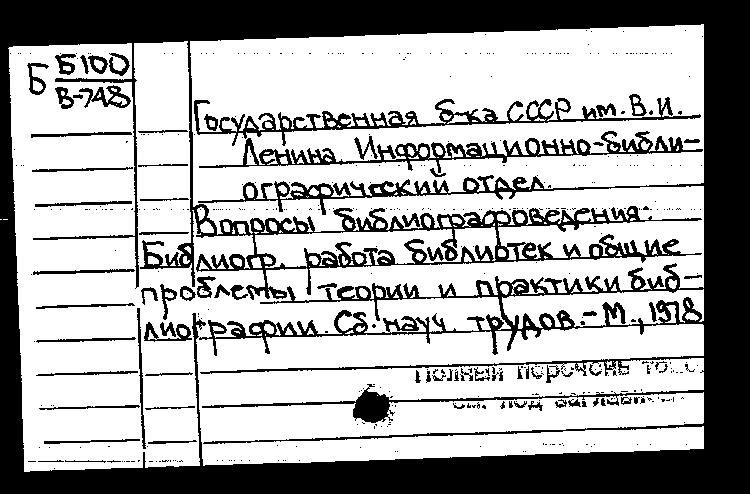 Б Б100
В-748
Государственная б-ка СССР им. В.И.
Ленина. Информационно-библи-
ографический отдел.
Вопросы библиографоведения:
Библиогр. работа библиотек и общие
проблемы теории и практики биб-
лиографии. Сб. науч. трудов. - М., 1978
Полный перечень
см. под